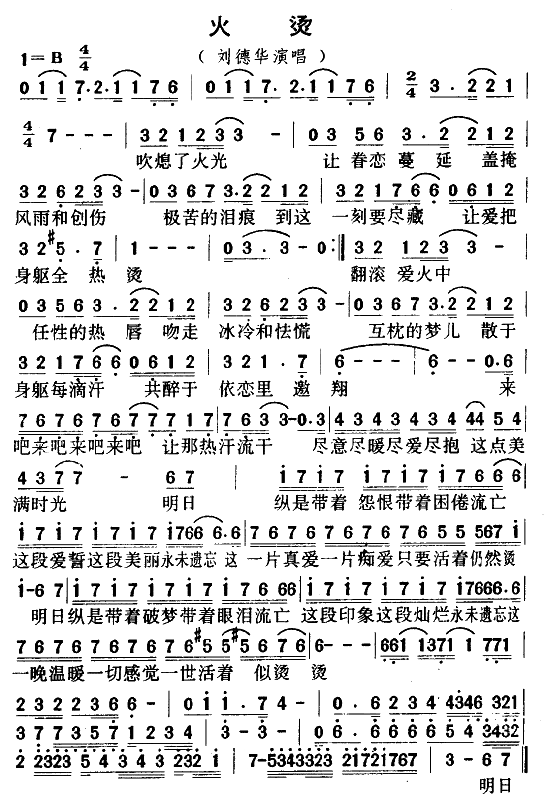 火 烫
1=B 4/4 （刘德华演唱）
0 1 1 7. 2. 1 1 7 6 | 0 1 1 7. 2. 1 1 7 6 | 2/4 3. 2 2 1 |
4/4 7 - - - | 3 2 1 2 3 3 - | 0 3 5 6 3. 2 2 1 2 |
吹熄了火光 让 眷恋 蔓 延 盖掩
3 2 6 2 3 3 - | 0 3 6 7 3. 2 2 1 2 | 3 2 1 7 6 6 0 6 1 2 |
风雨和创伤 极苦的泪痕 到这 一刻要尽藏 让爱把
3 2 #5. 7 | 1 - - - | 0 3. 3 - 0 :‖ 3 2 1 2 3 3 - |
身躯全 热 烫 翻滚 爱火中
0 3 5 6 3. 2 2 1 2 | 3 2 6 2 3 3 - | 0 3 6 7 3. 2 2 1 2 |
任性的热 唇 吻走 冰冷和怯慌 互枕的梦儿 散于
3 2 1 7 6 6 0 6 1 2 | 3 2 1. 7 | 6 - - - | 6 - - 0. 6 |
身躯每滴汗 共醉于 依恋里 遨 翔 来
7 6 7 6 7 6 7 7 7 1 7 | 7 6 3 3 - 0. 3 | 4 3 4 3 4 3 4 3 4 4 5 4 |
吧来吧来吧来吧 让那热汗流干 尽意尽暖尽爱尽抱 这点美
4 3 7 7 - 6 7 | 1 7 1 7 1 7 1 7 1 7 6 6 6 |
满时光 明日 纵是带着 怨恨带着困倦流亡
1 7 1 7 1 7 1 7 1 7 6 6 6. 6 | 7 6 7 6 7 6 7 6 7 6 5 5 5 6 7 1 |
这段爱誓这段美丽永未遗忘 这 一片真爱一片痴爱只要活着仍然烫
1 - 6 7 | 1 7 1 7 1 7 1 7 1 7 6 6 | 1 7 1 7 1 7 1 7 1 7 6 6 6. 6 |
明日纵是带着破梦带着眼泪流亡 这段印象这段灿烂永未遗忘这
7 6 7 6 7 6 7 6 7 6 #5 #5 5 6 7 6 | 6 - - - | 6 6 1 1 3 7 1 1 7 7 1 |
一晚温暖一切感觉一世活着 似烫 烫
2 3 2 2 2 3 6 6 - | 0 1 1. 7 4 - | 0. 6 2 3 4 4 3 4 6 3 2 1 |
3 7 7 3 5 7 1 2 3 4 | 3 - 3 - | 0. 6 6 7 6 5 4 5 3 4 3 2 |
2 2 3 2 3 5 4 3 4 3 2 3 2 1 | 7 - 5 3 4 3 3 2 3 2 1 7 2 1 7 6 7 | 3 - 6 7 |
明日